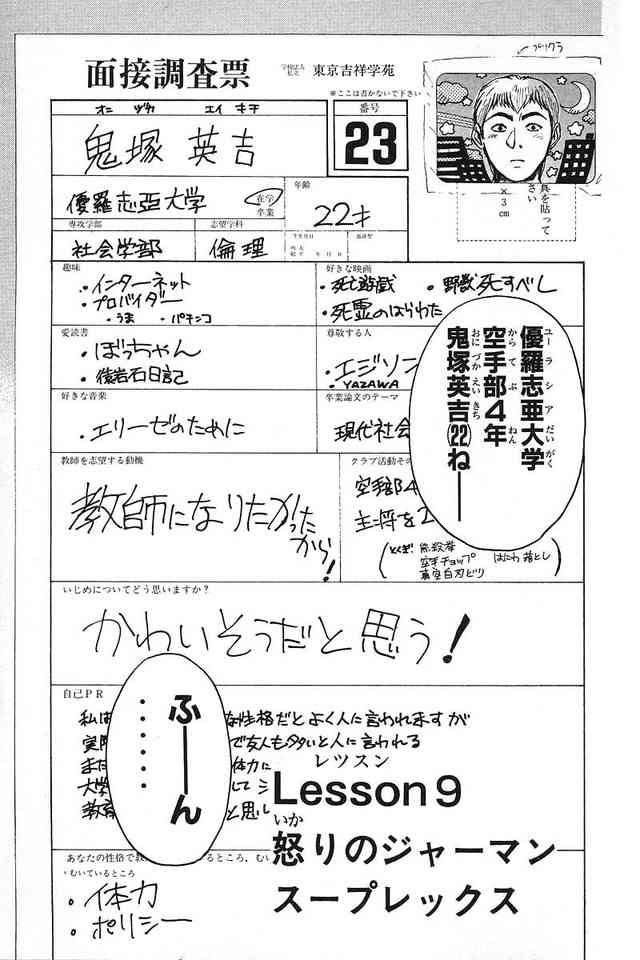 プリクラ
面接調査票
学校法人 東京吉祥学苑
※ここは書かないで下さい
オニ ヅカ エイ キチ
鬼塚 英吉
番号
23
優羅志亜大学
在学
卒業
年齢
22才
真を貼って
さい
×3cm
専攻学部
社会学部
志望学科
倫理
趣味
・インターネット
・プロバイダー
・うま ・パチンコ
好きな映画
・死亡遊戯 ・野獣死すべし
・死霊のはらわた
愛読書
・ぼっちゃん
・猿岩石日記
尊敬する人
・エジソン
・YAZAWA
優羅志亜大学
ユーラシアだいがく
空手部4年
からてぶ ねん
鬼塚英吉(22)ねーー
おにづかえいきち
好きな音楽
・エリーゼのために
卒業論文のテーマ
現代社会
教師を志望する動機
教師になりたかった
から!
クラブ活動その
空手部4
主将を2
とくぎ:
空手チョップ はにわ落とし
真空白刃どり
いじめについてどう思いますか?
かわいそうだと思う!
自己PR
私は
な性格だとよく人に言われますが
実際
で友人も多いと人に言われる
また
体力に
大学
して
教育
と思い
ふーーん・・・・・・
レッスン
Lesson9
いか
怒りのジャーマン
スープレックス
あなたの性格で教
いるところ、むい
・むいているところ
・体力
・ポリシー